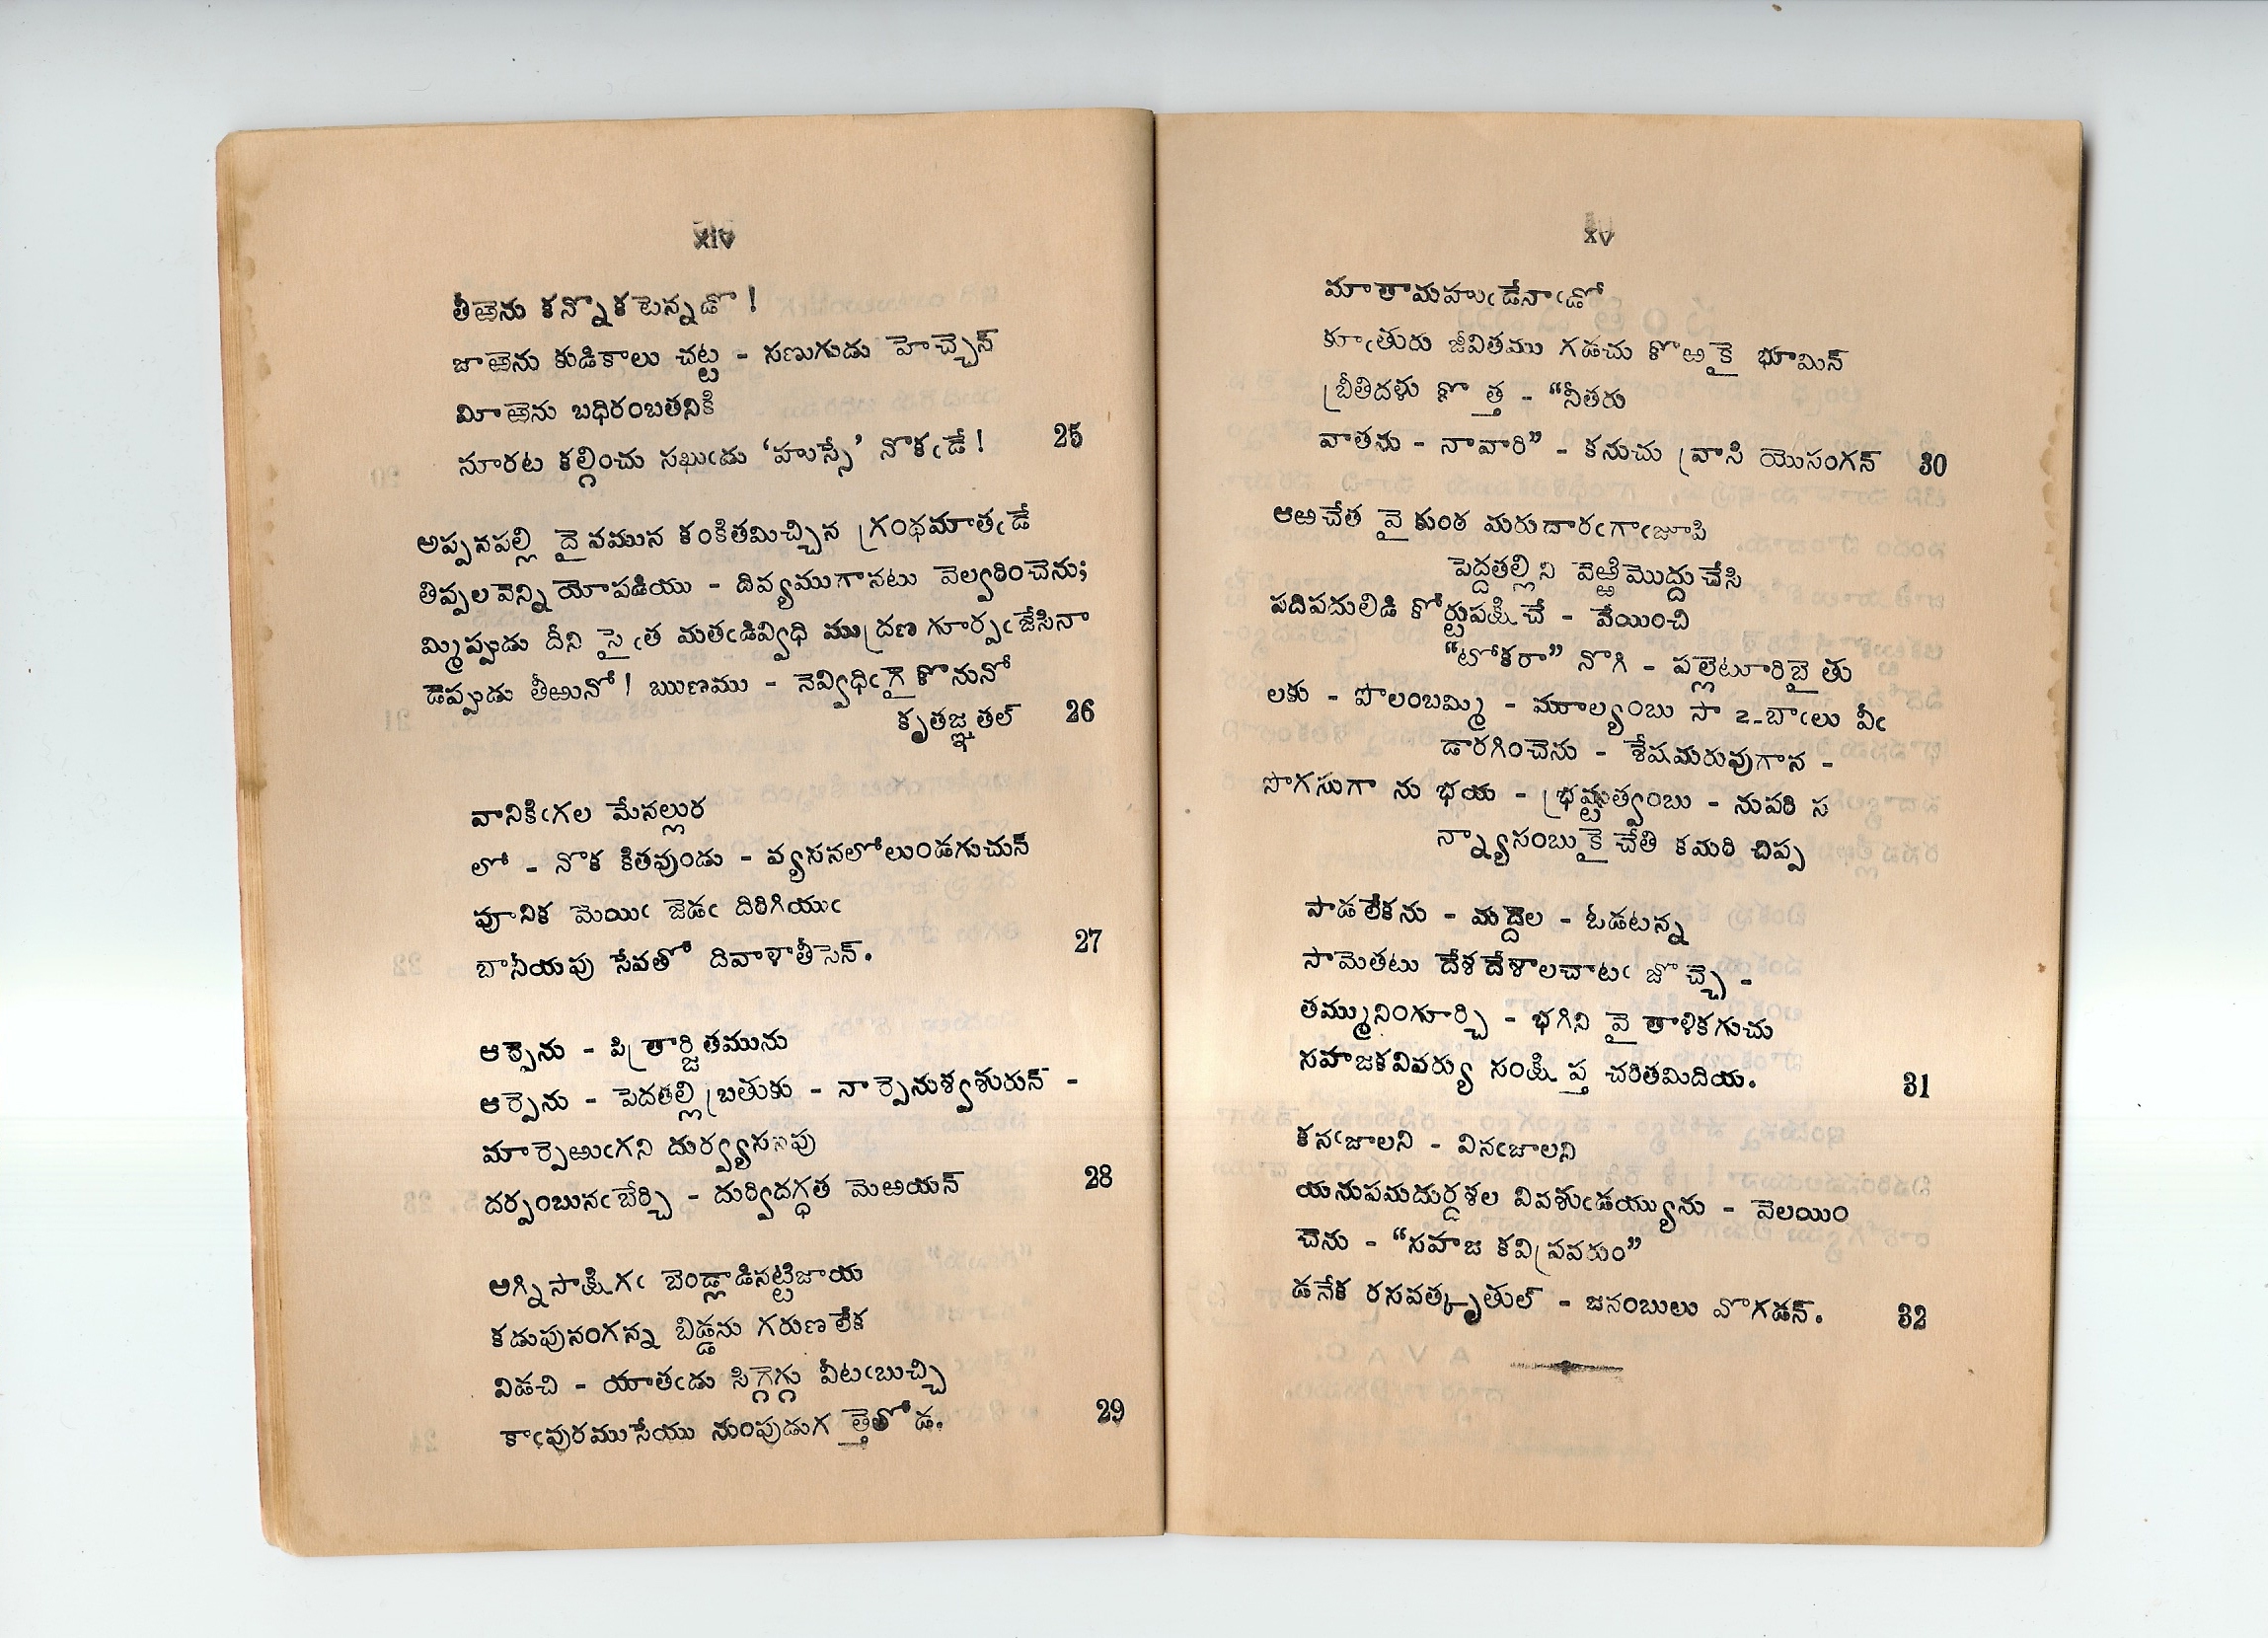 xiv
తీఱెను కన్నొకటెన్నడొ !
జాఱెను కుడికాలు చట్ట - సణుగుడు హెచ్చెన్
మీఱెను బధిరంబతనికి
నూరట కల్గించు సఖుఁడు ‘హుస్సే’ నొకఁడే ! 25
అప్పనపల్లి దైవమున కంకితమిచ్చిన గ్రంథమాతఁడే
తిప్పలవెన్నియోపడియు - దివ్యముగానటు వెల్వరించెను;
మ్మిప్పుడు దీని సైఁత మతఁడివ్విధి ముద్రణ గూర్పఁజేసినా
డెప్పుడు తీఱునో ! ఋణము - నెవ్విధిఁగై కొనునో
కృతజ్ఞతల్ 26
వానికిఁగల మేనల్లుర
లో - నొక కితవుండు - వ్యసనలోలుండగుచున్
పూనిక మెయిఁ జెడఁ దిరిగియుఁ
బానీయపు సేవతో దివాళాతీసెన్. 27
ఆర్పెను - పిత్రార్జితమును
ఆర్పెను - పెదతల్లి బ్రతుకు - నార్పెనుశ్వశురున్ -
మార్పెఱుఁగని దుర్వ్యసనపు
దర్పంబునఁబేర్చి - దుర్విదగ్ధత మెఱయన్ 28
అగ్నిసాక్షిగఁ బెండ్లాడినట్టిజాయ
కడుపునంగన్న బిడ్డను గరుణలేక
విడచి - యాతఁడు సిగ్గెగ్గు వీటఁబుచ్చి
కాఁపురముసేయు నుంపుడుగ త్తెతోడ. 29
xv
మాతామహుఁడేనాఁడో
కూఁతురు జీవితము గడచు కొఱకై భూమిన్
బ్రీతిదళు కొత్త - “నీతరు
వాతను - నావారి” - కనుచు వ్రాసి యొసంగన్ 30
ఆఱచేత వైకుంఠ మరుదారఁగాఁజూపి
పెద్దతల్లిని వెఱ్ఱిమొద్దుచేసి
పదిపదులిడి కోర్టుపక్షిచే - వేయించి
“టోకరా” నొగి - పల్లెటూరిబైతు
లకు - పొలంబమ్మి - మూల్యంబు సా౨-బాఁలు వీఁ
డారగించెను - శేషమరువుగాన -
సొగసుగా ను భయ - భ్రష్టుత్వంబు - నుపరి స
న్న్యాసంబుకై చేతి కమరి చిప్ప
పాడలేకను - మద్దెల - ఓడటన్న
సామెతటు దేశదేశాలచాటఁ జొచ్చె -
తమ్మునింగూర్చి - భగిని వైతాళికగుచు
సహజకవివర్యు సంక్షిప్త చరితమిదియ. 31
కనఁజాలని - వినఁజాలని
యనుపమదుర్దశల వివశుఁడయ్యును - వెలయిం
చెను - “సహజ కవిప్రవరుం”
డనేక రసవత్కృతుల్ - జనంబులు పొగడన్. 32